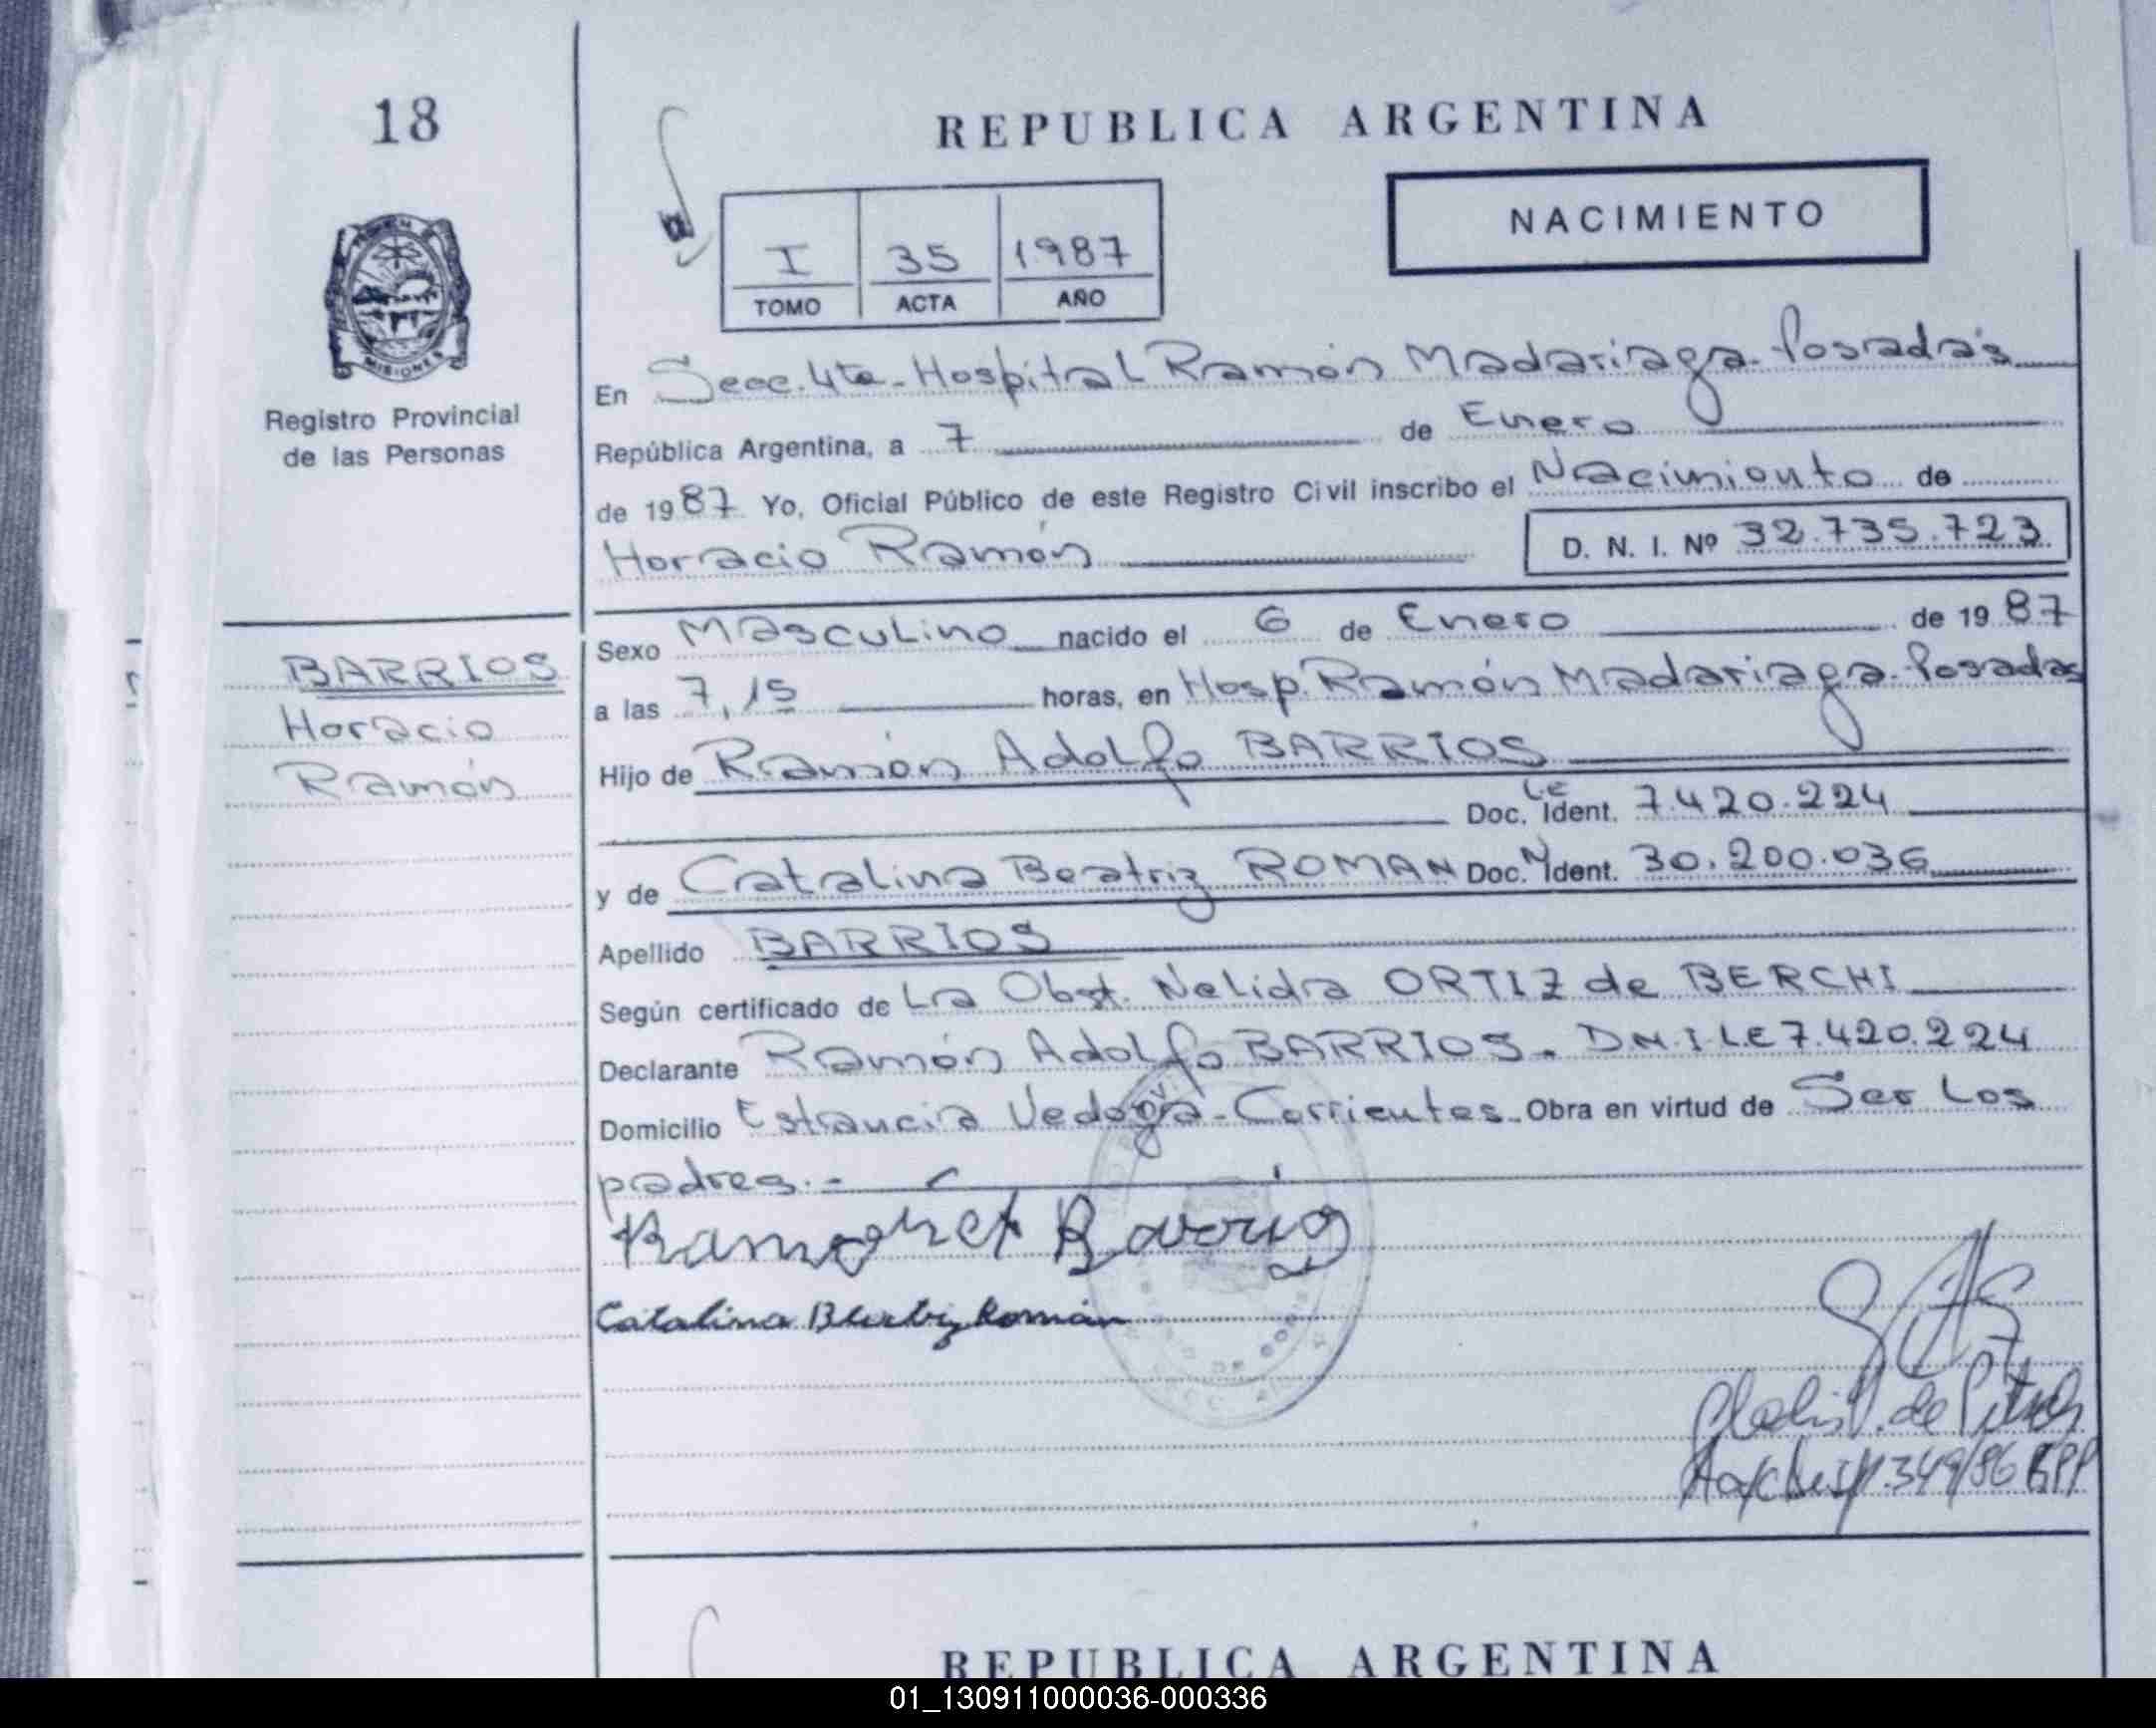 18
REPUBLICA ARGENTINA
NACIMIENTO
I 35 1987
TOMO ACTA AÑO
MISIONES
Registro Provincial
de las Personas
En Secc. 4ta - Hospital Ramón Madariaga - Posadas
República Argentina, a 7 de Enero
de 1987 Yo, Oficial Público de este Registro Civil inscribo el Nacimiento de
Horacio Ramón D. N. I. Nº 32.735.723
BARRIOS
Horacio
Ramón
Sexo Masculino nacido el 6 de Enero de 1987
a las 7,15 horas, en Hosp. Ramón Madariaga - Posadas
Hijo de Ramón Adolfo BARRIOS
Doc. Ident. LE 7.420.224
y de Catalina Beatriz ROMAN Doc. Ident. 30.200.036
Apellido BARRIOS
Según certificado de La Obst. Nelida ORTIZ de BERCHI
Declarante Ramón Adolfo BARRIOS. DNI LE 7.420.224
Domicilio Estancia Vedoya - Corrientes - Obra en virtud de Ser Los
padres.-
Barrios
Catalina Beatriz Román
REPUBLICA ARGENTINA
01_130911000036-000336